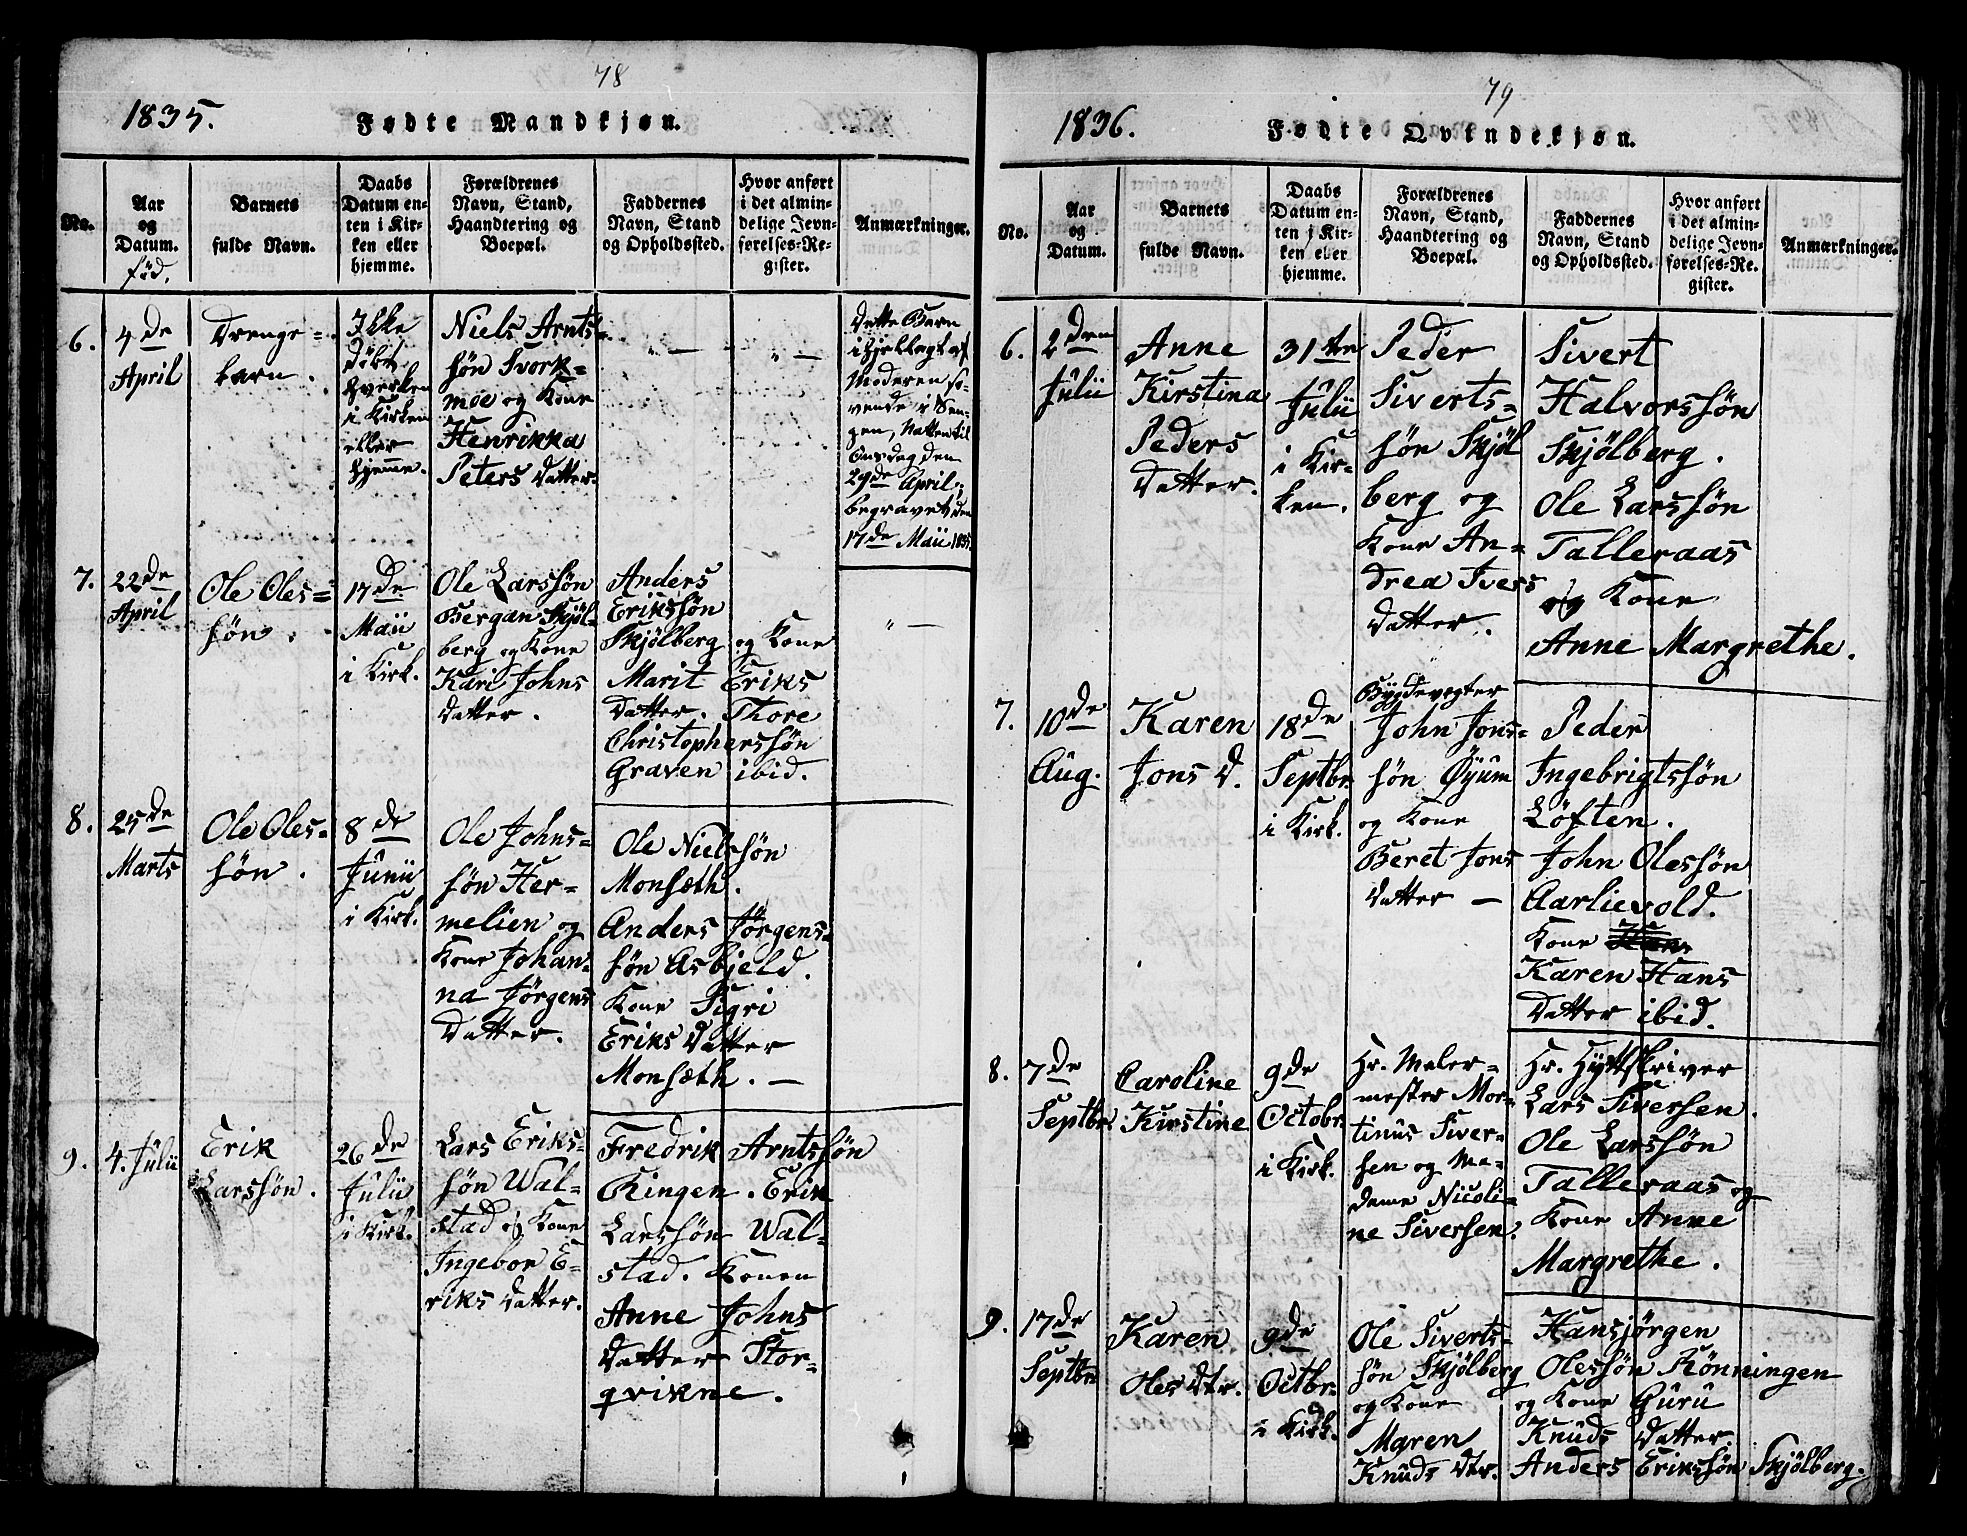 78
1835.
Fødte Mandkjøn.
No.
Aar
og
Datum.
fød.
Barnets
fulde Navn.
Daabs
Datum en-
ten i Kir-
ken eller
hjemme.
Forældrenes
Navn, Stand,
Haandtering og
Boepæl.
Faddernes
Navn, Stand
og Opholdssted.
Hvor anført
i det almin-
delige Jevn-
førelses-Re-
gister.
Anmærkninger.
6.
4de
April
Drenge-
barn.
Ikke
døbt
hverken
i Kirken
eller
hjemme.
Niels Arnts-
søn Svork-
moe og Kone
Henrikka
Peters Datter.
" —
" —
Dette Barn
ihjellagt af
Moderen so-
vende i Sen-
gen, Natten til
Onsdag den
29de April,
begravet den
17de Maii 1835.
7.
22de
April
Ole Oles-
søn.
17de
Maii
i Kirk.
Ole Larssøn
Bergan Skjøl-
berg og Kone
Kari Johns
Datter.
Anders
Erikssøn
Skjølberg og Kone
Marit Eriks
Datter. Thore
Christopherssøn
Graven ibid.
" —
8.
25de
Marts
Ole Oles-
søn.
8de
Junii
i Kirk.
Ole Johns-
søn Her-
melien og
Kone Johan-
na Jørgens
Datter.
Ole Nielssøn
Monsæth.
Anders Jørgens-
søn Asbjeld.
Kone Sigri
Eriks Datter
Monsæth. —
9.
4. Julii
Erik
Larssøn.
26de
Julii
i Kirk.
Lars Eriks-
søn Wal-
stad og Kone
Ingebor E-
riks Datter.
Fredrik Arntssøn
Ringen. Erik
Larssøn Wal-
stad. Konen
Anne Johns
Datter Stor-
qvikne.
79
1836.
Fødte Qvindekjøn.
No.
Aar
og
Datum.
Barnets
fulde Navn.
Daabs
Datum en-
ten i Kir-
ken eller
hjemme.
Forældrenes
Navn, Stand,
Haandtering og
Boepæl.
Faddernes
Navn, Stand
og Opholdssted.
Hvor anført
i det almin-
delige Jevn-
førelses-Re-
gister.
Anmærkninger.
6.
2den
Julii
Anne
Kirstina
Peders
Datter.
31te
Julii
i Kir-
ken.
Peder
Siverts-
søn Skjøl
berg og
Kone An-
drea Ivers
Datter.
Sivert
Halvorssøn
Skjølberg.
Ole Larssøn
Talleraas
og Kone
Anne Margrethe.
7.
10de
Aug.
Karen
Jons D.
18de
Septbr.
i Kirk.
Bygdevogter
John Jons-
søn Øyum
og Kone
Beret Jons
Datter —
Peder
Ingebrigtssøn
Løften.
John Olessøn
Aarlievold.
Kone
Karen Hans
Datter ibid.
8.
7de
Septbr.
Caroline
Kirstine
9de
Octobr.
i Kirk.
Hr. Maler-
mester Mor-
tinus Siver-
sen og Ma-
dame Nicoli-
ne Siversen.
Hr. Hyttskriver
Lars Siversen.
Ole Larssøn
Talleraas og
Kone Anne
Margrethe.
9.
17de
Septbr
Karen
Oles Dtr.
9de
Octbr.
i Kirk.
Ole Siverts-
søn Skjølberg
og Kone
Maren
Knuds Dtr.
Hansjørgen
Olessøn Rønningen
og Kone Guru
Knuds Datter
Anders Erikssøn Skjølberg.